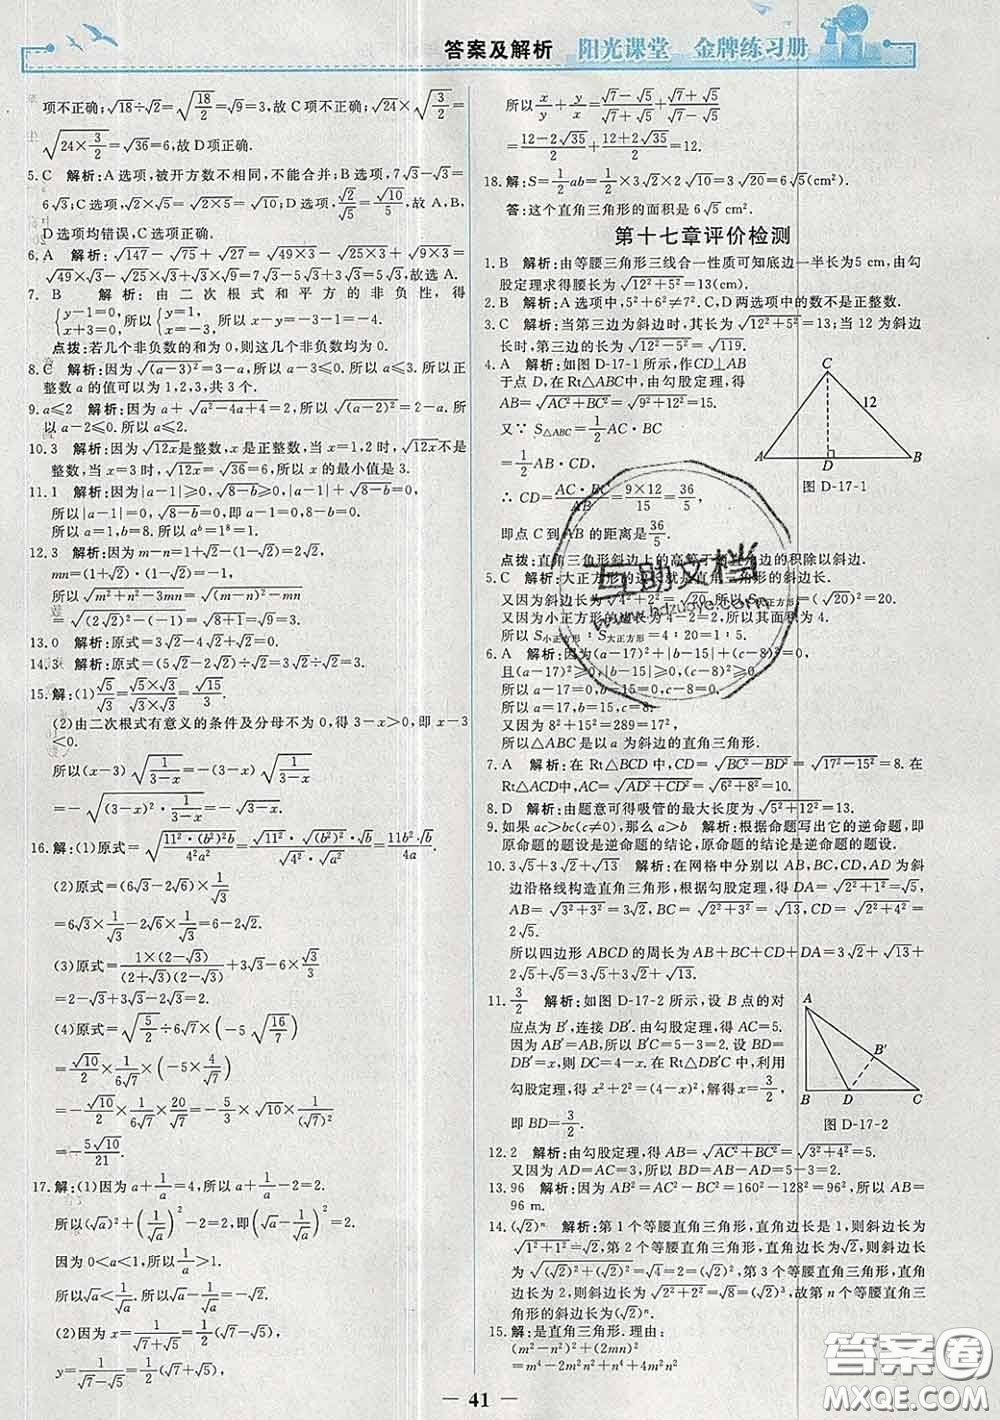 答案及解析 阳光课堂 金牌练习册
项不正确;√18÷√2=√(18/2)=√9=3,故C项不正确;√24×√(3/2)=
√(24×3/2)=√36=6,故D项正确.
5.C 解析:A选项,被开方数不相同,不能合并;B选项,7√3-√3=
6√3;C选项,√2×√5=√(2×5)=√10;D选项,√2/√5=√10/5,故A,B,
D选项均错误,C选项正确.
6.A 解析:√147-√75+√27=√(49×3)-√(25×3)+√(9×3)=
√49×√3-√25×√3+√9×√3=7√3-5√3+3√3=5√3,故选A.
7.B 解析:由二次根式和平方的非负性,得
{y-1=0, x+3=0,所以{y=1, x=-3,所以x-y=-3-1=-4.
点拨:若几个非负数的和为0,则这几个非负数均为0.
8.C 解析:因为√(a-3)²=3-a,所以a-3≤0.所以a≤3.所以正
整数a的值可以为1,2,3,共3个.
9.a≤2 解析:因为a+√(a²-4a+4)=2,所以√(a-2)²=2-a.所
以a-2≤0.所以a≤2.
10.3 解析:因为√12x是整数,x是正整数,当x=1,2时,√12x不是
整数,当x=3时,√12x=√36=6,所以x的最小值是3.
11.1 解析:因为|a-1|≥0,√(8-b)≥0,|a-1|+√(8-b)=0,
所以|a-1|=0,√(8-b)=0,即a-1=0,8-b=0.
所以a=1,b=8.所以aᵇ=1⁸=1.
12.3 解析:因为m-n=1+√2-(1-√2)=2√2,
mn=(1+√2)(1-√2)=-1,
所以√(m²+n²-3mn)=√((m-n)²-mn)
=√((2√2)²-(-1))=√(8+1)=√9=3.
13.0 解析:原式=3√2-4√2+√2=0.
14.3 解析:原式=(5√2-2√2)÷√2=3√2÷√2=3.
15.解:(1)√5/√3=(√5×√3)/(√3×√3)=√15/3.
(2)由二次根式有意义的条件及分母不为0,得3-x>0,即x-3
<0.
所以(x-3)√(1/(3-x))=-(3-x)√(1/(3-x))
=-√((3-x)²·1/(3-x))=-√(3-x).
16.解:(1)原式=√(11²·(b²)²b/4²a²)=√11²·√(b²)²·√b/(√4²·√a²)=11b²√b/4a.
(2)原式=(6√3-2√6)×1/√3
=6√3×1/√3-2√6×1/√3=6-2√2.
(3)原式=1×(2-√3)/((2+√3)(2-√3))+3√3-6×√3/3
=2-√3+3√3-2√3=2.
(4)原式=√(5/2)÷6√7×(-5√(16/7))
=√10/2×1/6√7×(-5×4/√7)
=-√10/2×1/6√7×20/√7=-5/3×√10×1/(√7)²
=-5√10/21.
17.解:(1)因为a+1/a=4,所以a+1/a-2=2.
所以(√a)²+(1/√a)²-2=2,即(√a-1/√a)²=2.
因为0<a<1,所以1/a>1.
所以√a<1/√a.所以√a-1/√a=-√2.
(2)因为x=1/(√7+√5)=1/2(√7-√5),
y=1/(√7-√5)=1/2(√7+√5),
所以x/y+y/x=(√7-√5)/(√7+√5)+(√7+√5)/(√7-√5)
=(12-2√35)/2+(12+2√35)/2=12.
18.解:S=1/2ab=1/2×3√2×2√10=3√20=6√5(cm²).
答:这个直角三角形的面积是6√5 cm².
第十七章评价检测
1.B 解析:由等腰三角形三线合一性质可知底边一半长为5 cm,由勾
股定理求得腰长为√(12²+5²)=13(cm).
2.B 解析:A选项中,5²+6²≠7².C,D两选项中的数不是正整数.
3.C 解析:当第三边为斜边时,其长为√(12²+5²)=13;当12为斜边
长时,第三边的长为√(12²-5²)=√119.
4.A 解析:如图D-17-1所示,作CD⊥AB
于点D,在Rt△ABC中,由勾股定理,得
AB=√(AC²+BC²)=√(9²+12²)=15.
又∵S△ABC=1/2AC·BC
=1/2AB·CD,
∴CD=AC·BC/AB=9×12/15=36/5,
即点C到AB的距离是36/5.
C 12 A D B
图D-17-1
点拨:直角三角形斜边上的高等于两直角边的积除以斜边.
5.C 解析:大正方形的边长就是直角三角形的斜边长.
又因为斜边长为√(4²+2²)=√20.所以S大正方形=(√20)²=20.
又因为小正方形的边长=4-2=2,所以其面积为4.
所以S小正方形:S大正方形=4:20=1:5.
6.A 解析:因为(a-17)²+|b-15|+(c-8)²=0,
且(a-17)²≥0,|b-15|≥0,(c-8)²≥0,
所以a-17=0,b-15=0,c-8=0.
所以a=17,b=15,c=8.
又因为8²+15²=289=17²,
所以△ABC是以a为斜边的直角三角形.
7.A 解析:在Rt△BCD中,CD=√(BC²-BD²)=√(17²-15²)=8.在
Rt△ACD中,AC=√(AD²+CD²)=√(6²+8²)=10.
8.D 解析:由题意可得吸管的最大长度为√(5²+12²)=13.
9.如果ac>bc(c≠0),那么a>b 解析:根据命题写出它的逆命题,即
原命题的题设是逆命题的结论,原命题的结论是逆命题的题设.
10.3√5+3√2+√13 解析:在网格中分别以AB,BC,CD,AD为斜
边沿格线构造直角三角形,根据勾股定理,得AD=√(2²+1²)=√5,
AB=√(3²+3²)=3√2,BC=√(2²+3²)=√13,CD=√(2²+4²)=
2√5.
所以四边形ABCD的周长为AB+BC+CD+DA=3√2+√13+
2√5+√5=3√5+3√2+√13.
11.3/2 解析:如图D-17-2所示,设B点的对
应点为B′,连接DB′.由勾股定理,得AC=5.
因为AB′=AB=3,所以B′C=5-3=2.设BD=
DB′=x,则DC=4-x.在Rt△DB′C中,利用
勾股定理,得x²+2²=(4-x)²,解得x=3/2,
即BD=3/2.
A B′ B D C
图D-17-2
12.2 解析:由勾股定理,得AB=√(AC²+BC²)=√(3²+4²)=5.
又因为AD=AC=3,所以BD=AB-AD=5-3=2.
13.96 解析:因为AB²=AC²-BC²=160²-128²=96²,所以AB=
96 m.
14.(√2)ⁿ 解析:第1个等腰直角三角形,直角边长为1,则斜边长为
√(1²+1²)=√2.第2个等腰直角三角形,直角边长为√2,则斜边长为
√((√2)²+(√2)²)=√4=2=(√2)².第3个等腰直角三角形,直角边长
为2,则斜边长为√(2²+2²)=√8=(√2)³,故第n个等腰直角三
角形的斜边长为(√2)ⁿ.
15.解:是直角三角形.理由:
(m²-n²)²+(2mn)²
=m⁴-2m²n²+n⁴+4m²n²
41
互助文档
www.hdzuoye.com
答案圈
MXQE.COM